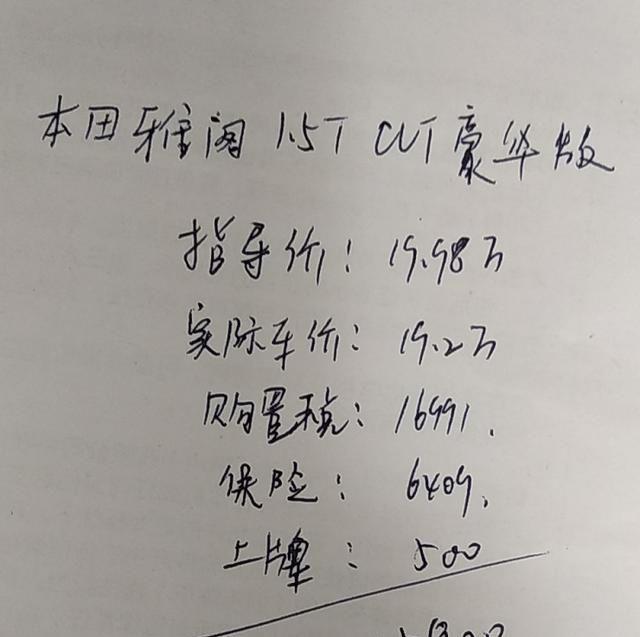 本田雅阁 1.5T CVT豪华版
指导价：19.98万
实际车价：19.2万
购置税：16991.
保险：6409.
上牌：500